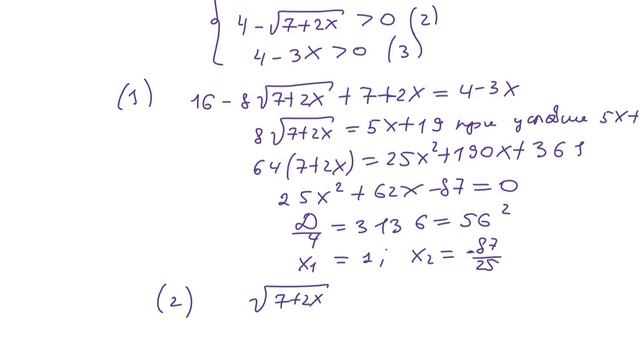 4 - √(7+2x) > 0 (2)
4 - 3x > 0 (3)
(1) 16 - 8√(7+2x) + 7+2x = 4-3x
8√(7+2x) = 5x+19 при условие 5x+
64(7+2x) = 25x²+190x+361
25x² + 62x - 87 = 0
D/4 = 3136 = 56²
x₁ = 1; x₂ = -87/25
(2) √(7+2x)